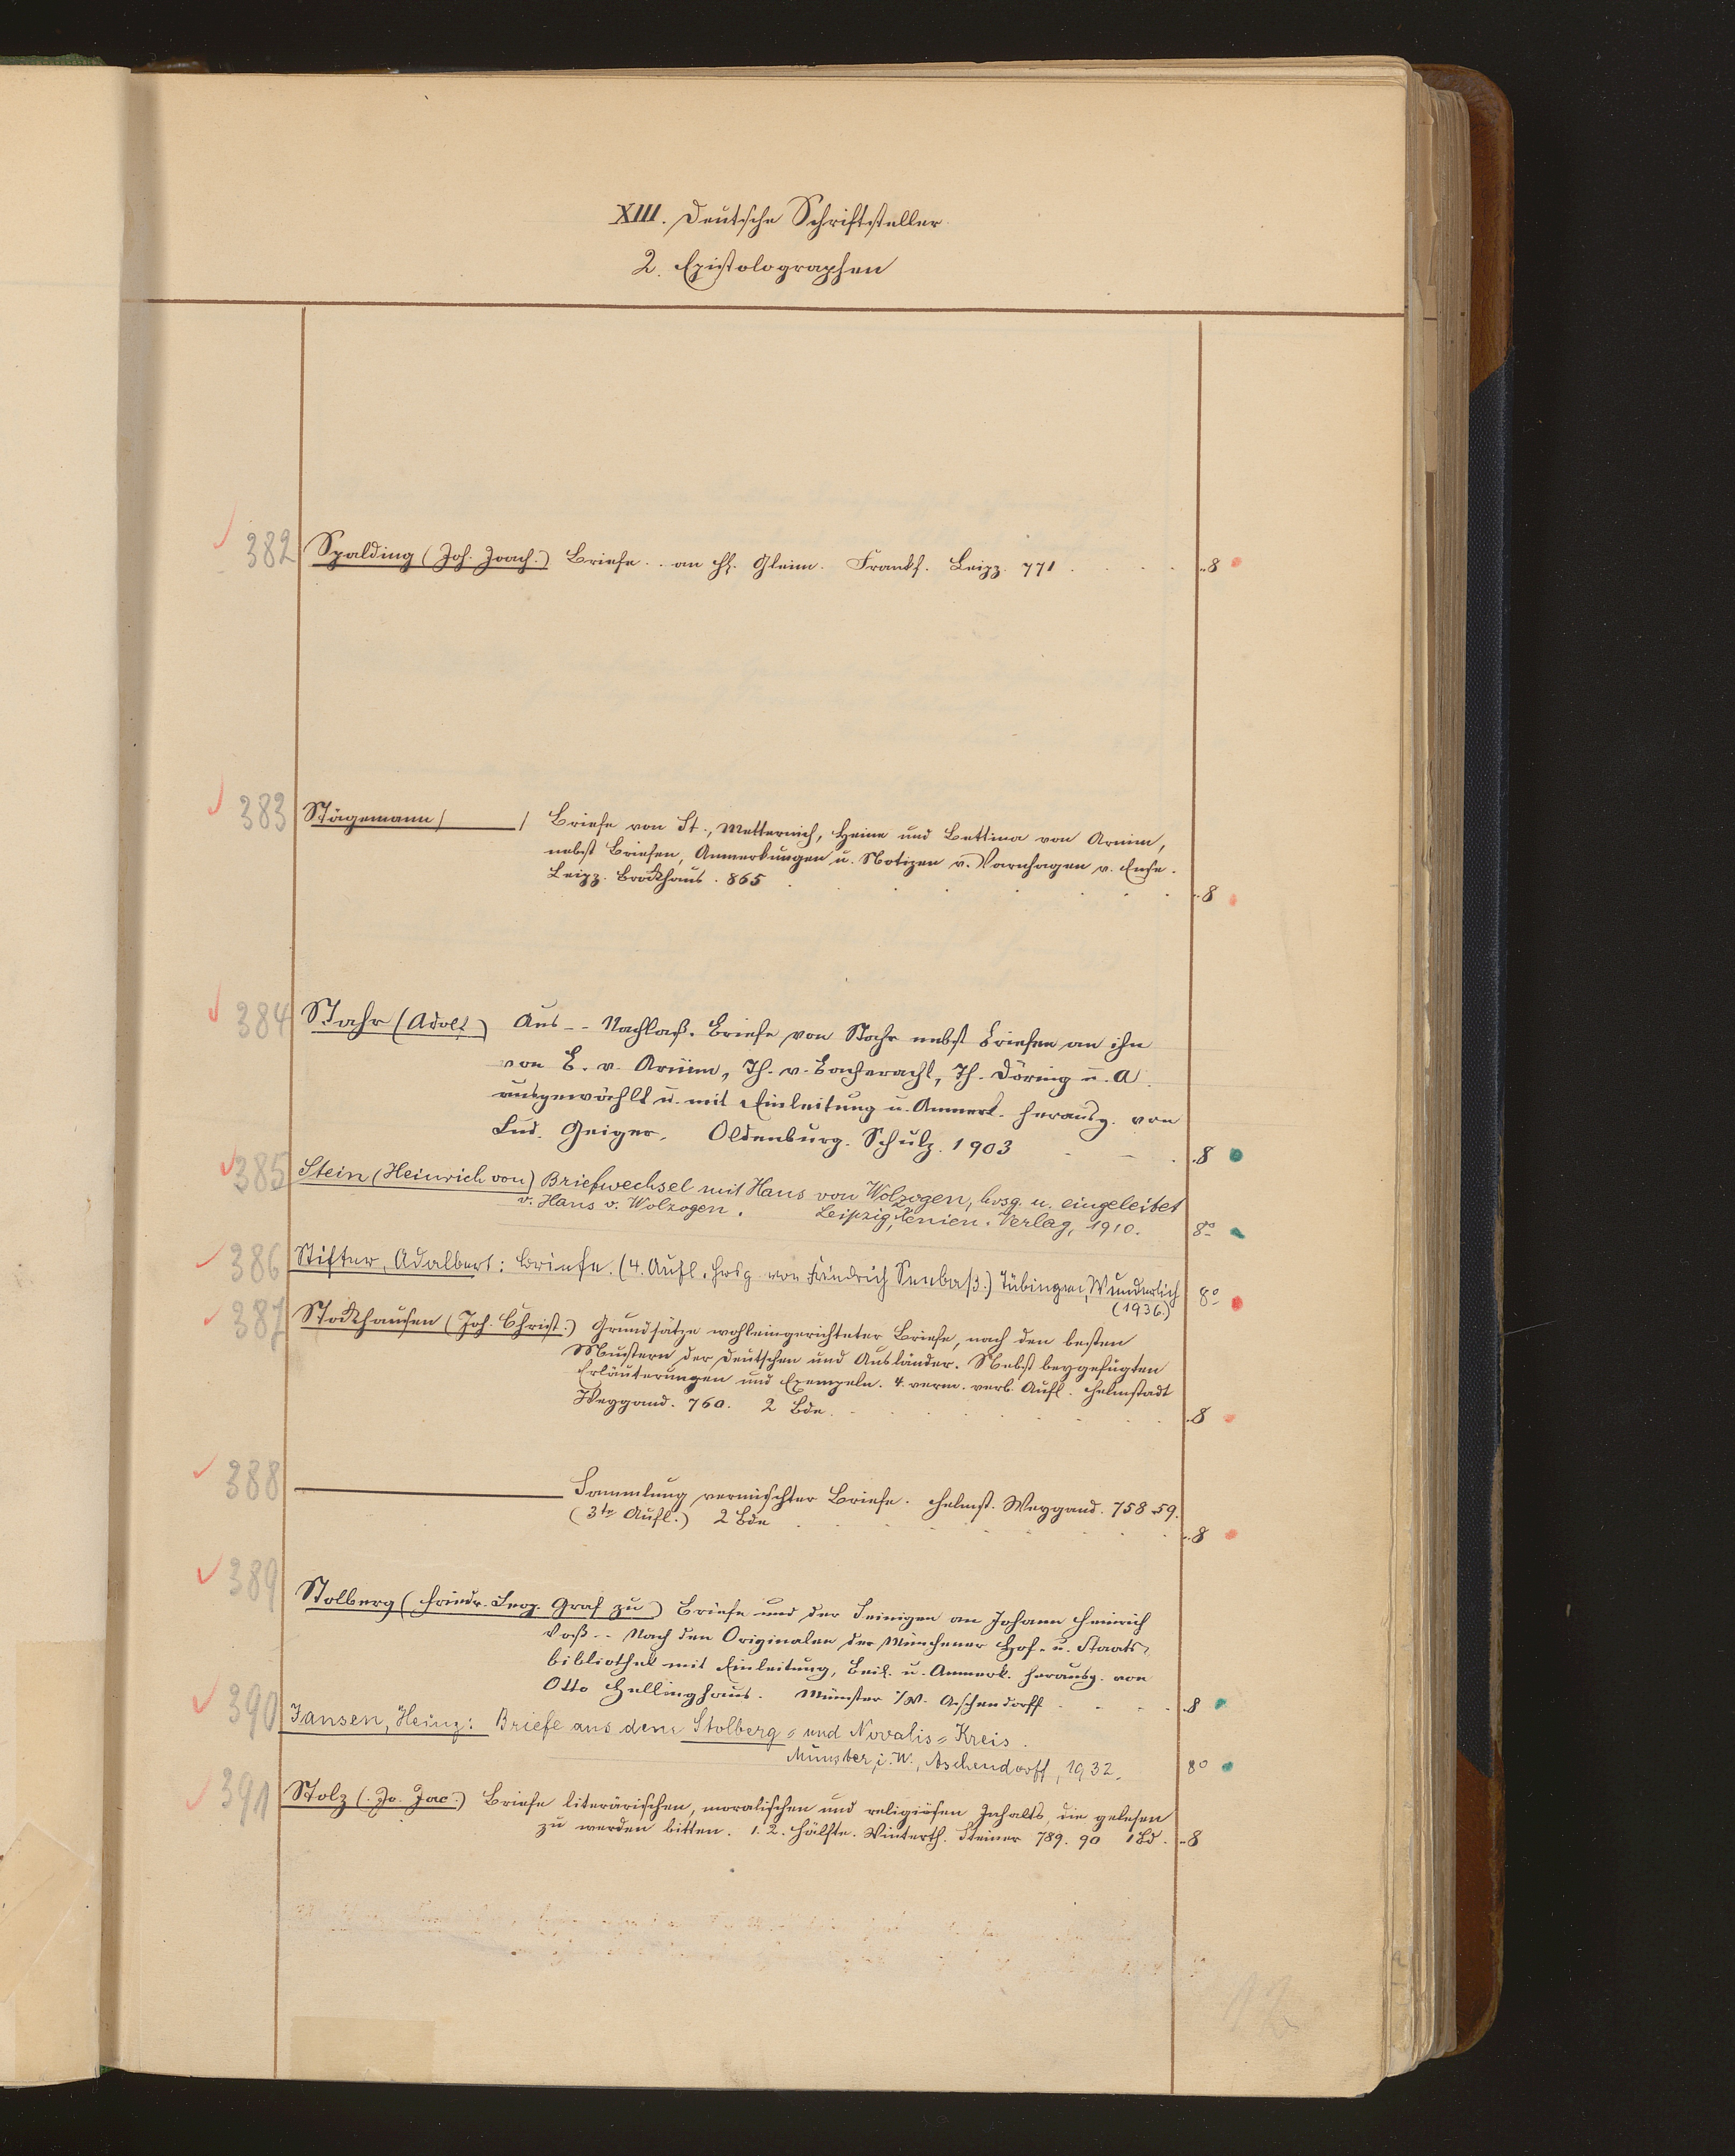 XIII. Deutsche Schriftsteller
2. Epistolographen
382 Spalding (Joh. Joach.) Briefe .. an H. Gleim. Frankf. Leipz. 771 . . . . ..8
383 Stägemann / / Briefe von St., Metternich, Heine und Bettina von Arnim,
nebst Briefen, Anmerkungen u. Notizen v. Varnhagen v. Ense.
Leipz. Brockhaus. 865 . . . . . . ..8
384 Stahr (Adolf) Aus -- Nachlaß. Briefe von Stahr nebst Briefen an ihn
von B. v. Arnim, Th. v. Bacheracht, Th. Döring u. A.
ausgewählt u. mit Einleitung u. Anmerk. herausg. von
Lud. Geiger. Oldenburg. Schulz. 1903 . . . .8
385 Stein (Heinrich von) Briefwechsel mit Hans von Wolzogen, hrsg. u. eingeleitet
v. Hans v. Wolzogen. Leipzig, Xenien-Verlag, 1910. 8°
386 Stifter, Adalbert: Briefe. (4. Aufl. Hrsg. von Friedrich Seebaß.) Tübingen, Wunderlich
(1936) 8°
387 Stockhausen (Joh. Christ.) Grundsätze wohleingerichteter Briefe, nach den besten
Mustern der Deutschen und Ausländer. Nebst beygefügten
Erläuterungen und Exempeln. 4. verm. verb. Aufl. Helmstadt
Weygand. 760. 2 Bde. . . . . . .8
388 Sammlung vermischter Briefe. Helmst. Weygand. 758 59.
(3te Aufl.) 2 Bde . . . . . . ..8
389
Stolberg (Friedr. Leop. Graf zu) Briefe und der Seinigen an Johann Heinrich
Voß -- Nach den Originalen der Münchener Hof- u. Staats-
bibliothek mit Einleitung, Beil. u. Anmerk. herausg. von
Otto Hellinghaus. Münster i/W. Aschendorff . . . .8
390 Jansen, Heinz: Briefe aus dem Stolberg- und Novalis-Kreis.
Münster, i. W., Aschendorff, 1932. 8°
391 Stolz (Jo. Jac.) Briefe literärischen, moralischen und religiösen Inhalts, die gelesen
zu werden bitten. 1. 2. Hälfte. Winterth. Steiner 789. 90 1 Bd. ..8
12